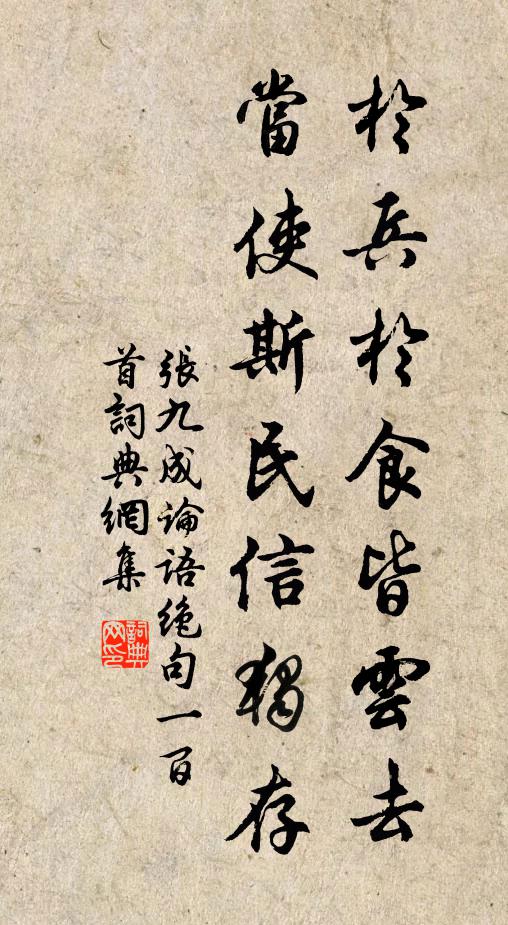 於兵於食皆雲去
當使斯民信獨存
張九成論語絶句一百
首詞典網集
詞典
网印